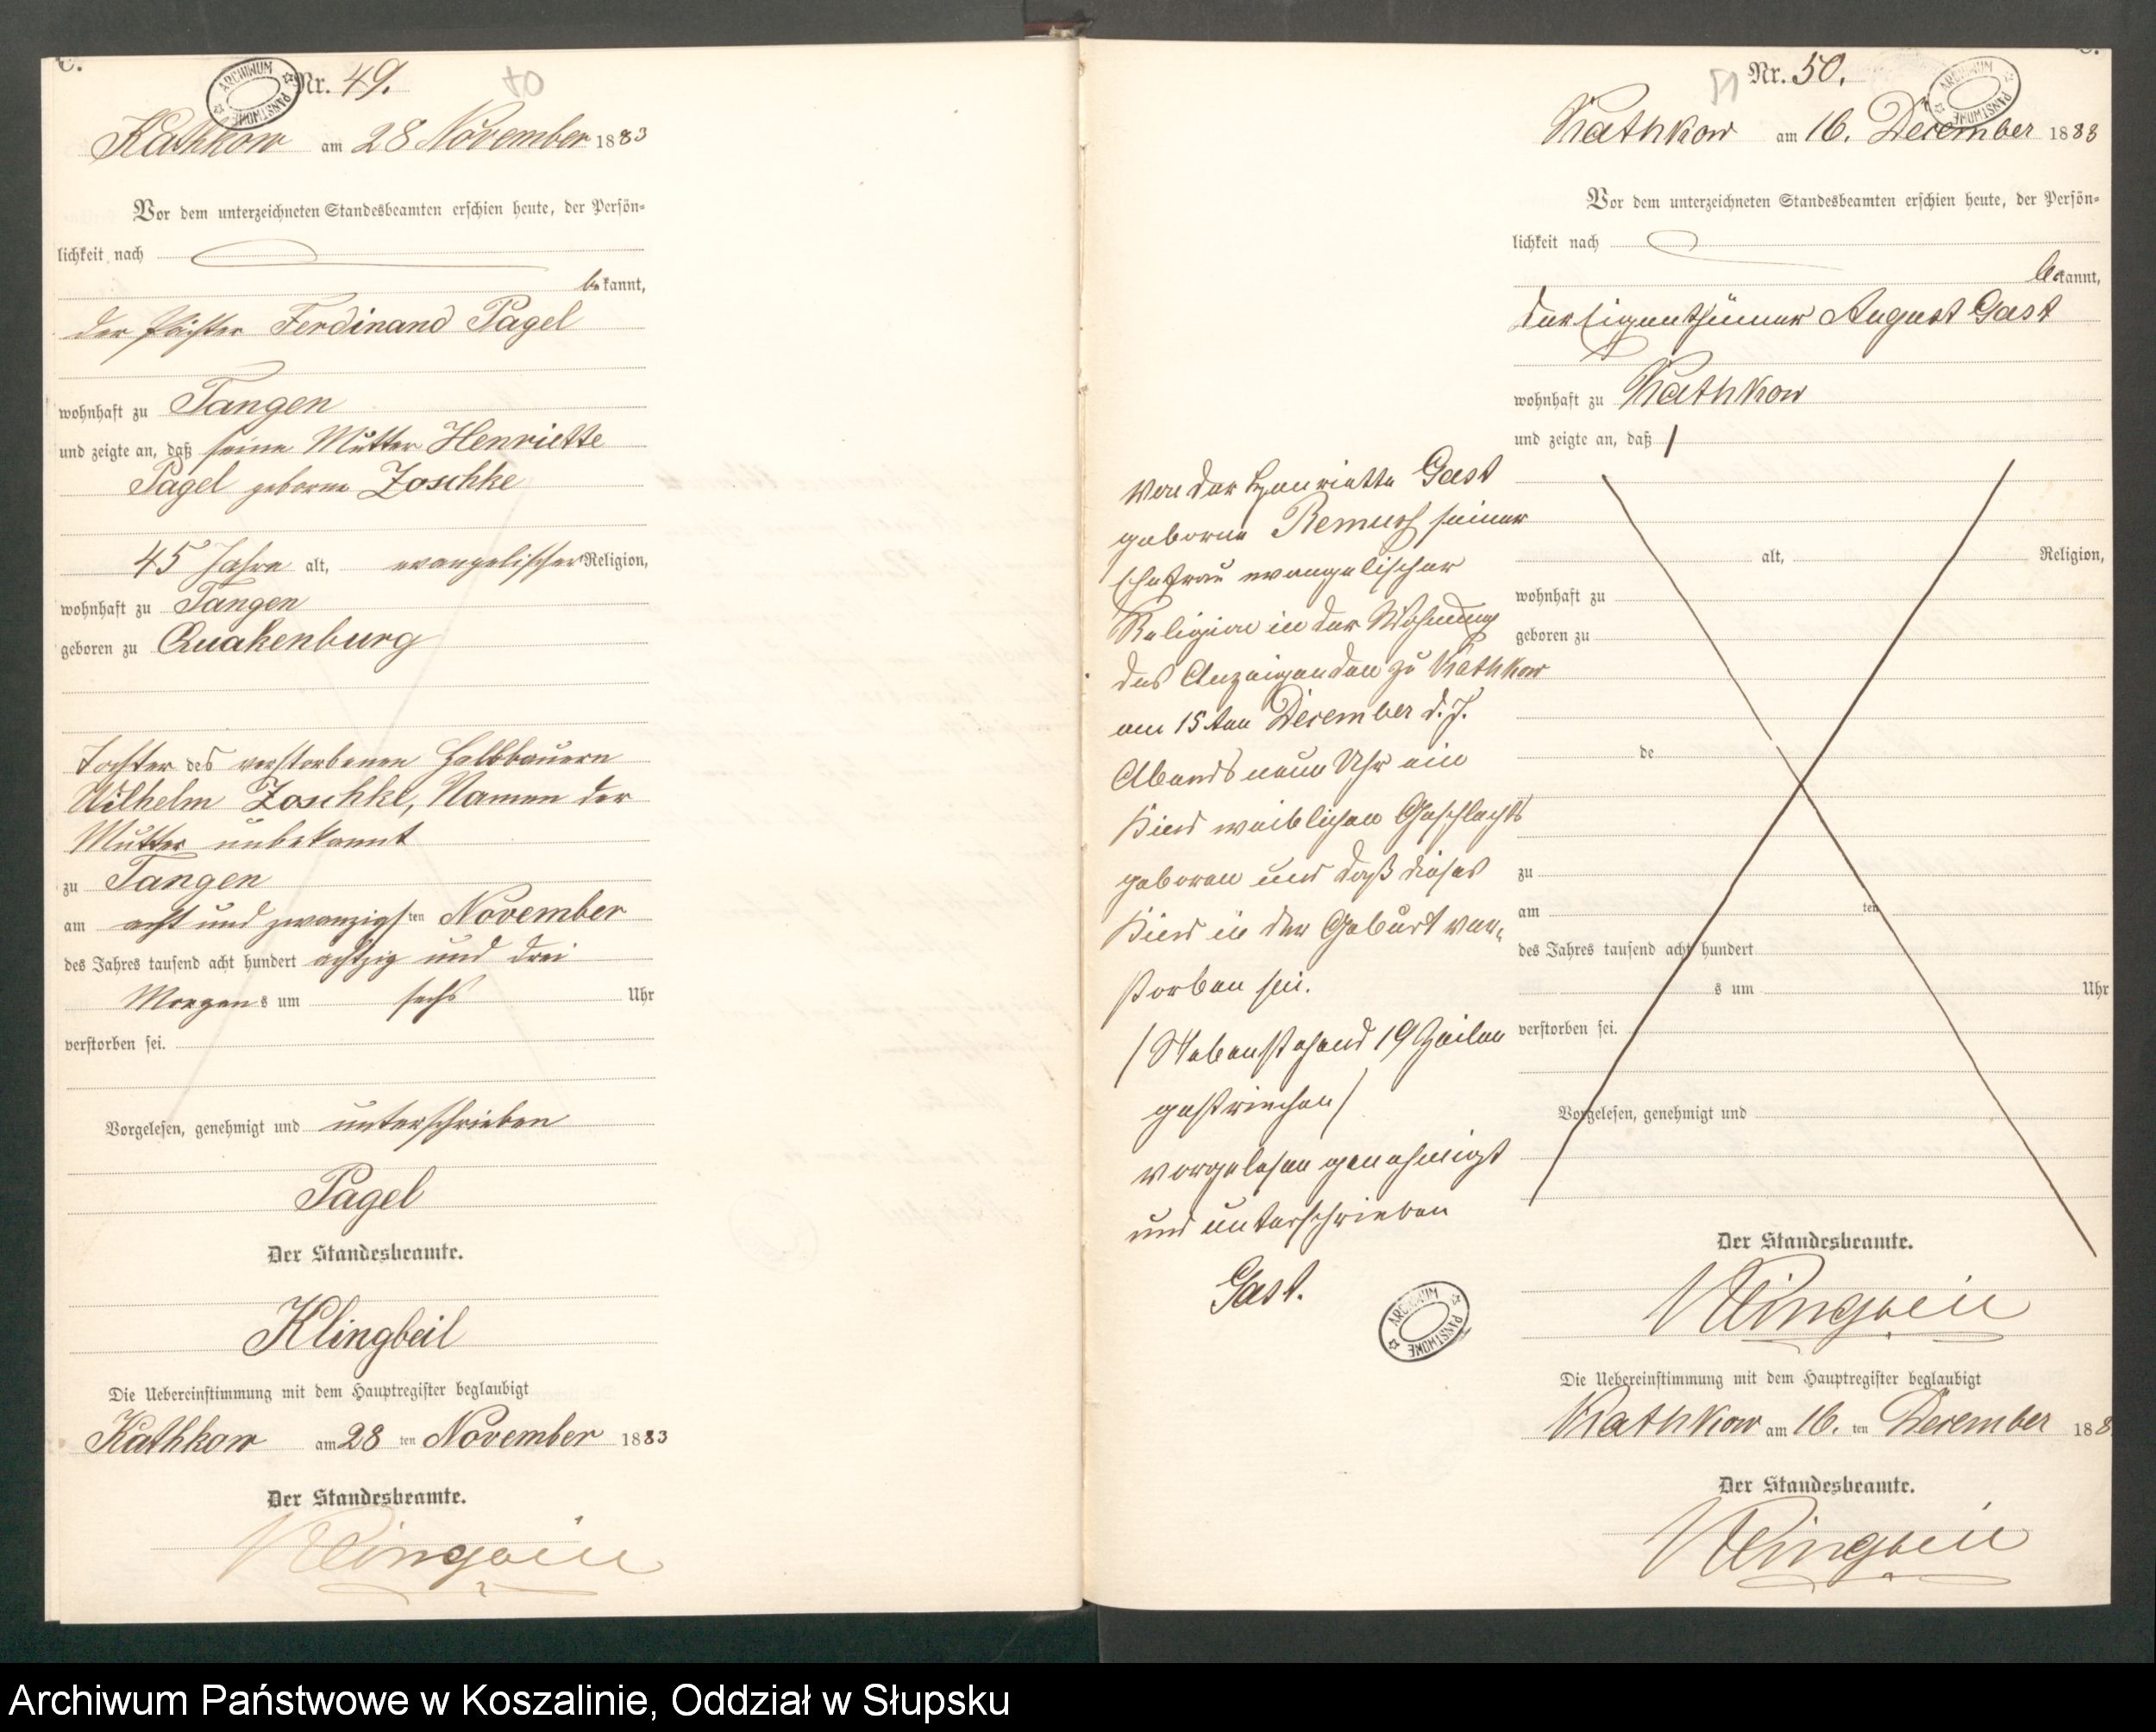 C.
Nr. 49.
50
Kathkow am 28 November 1883
Vor dem unterzeichneten Standesbeamten erschien heute, der Persön-
lichkeit nach
bekannt,
der Pächter Ferdinand Pagel
wohnhaft zu Tangen
und zeigte an, daß seine Mutter Henriette
Pagel geborne Zoschke
45 Jahre alt, evangelischer Religion,
wohnhaft zu Tangen
geboren zu Quakenburg
Tochter des verstorbenen Halbbauern
Wilhelm Zoschke, Namen der
Mutter unbekannt
zu Tangen
am acht und zwanzigsten November
des Jahres tausend acht hundert achtzig und drei
Morgens um sechs Uhr
verstorben sei.
Vorgelesen, genehmigt und unterschrieben
Pagel
Der Standesbeamte.
Klingbeil
Die Uebereinstimmung mit dem Hauptregister beglaubigt
Kathkow am 28 ten November 1883
Der Standesbeamte.
Klingbeil
C.
Nr. 50.
51
Kathkow am 16. December 1883
Vor dem unterzeichneten Standesbeamten erschien heute, der Persön-
lichkeit nach
bekannt,
der Eigenthümer August Gast
wohnhaft zu Kathkow
und zeigte an, daß /
von der Henriette Gast
geborne seiner
Ehefrau evangelischer
Religion in der Wohnung
des Anzeigenden zu Kathkow
am 15ten December d. J.
Abends neun Uhr ein
Kind weiblichen Geschlechts
geboren und daß dieses
Kind in der Geburt ver-
storben sei.
/ Nebenstehend 19 Zeilen
gestrichen /
vorgelesen genehmigt
und unterschrieben
Gast.
alt, Religion,
wohnhaft zu
geboren zu
de
zu
am ten
des Jahres tausend acht hundert
s um Uhr
verstorben sei.
Vorgelesen, genehmigt und
Der Standesbeamte.
Klingbeil
Die Uebereinstimmung mit dem Hauptregister beglaubigt
Kathkow am 16. ten December 188
Der Standesbeamte.
Klingbeil
ARCHIWUM PAŃSTWOWE
Archiwum Państwowe w Koszalinie, Oddział w Słupsku